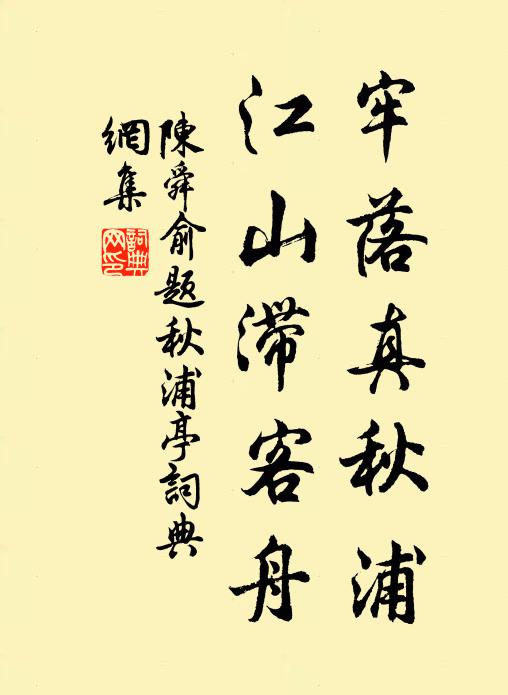 牢落真秋浦
江山滯客舟
陳舜俞題秋浦亭詞典
網集
詞典
网印